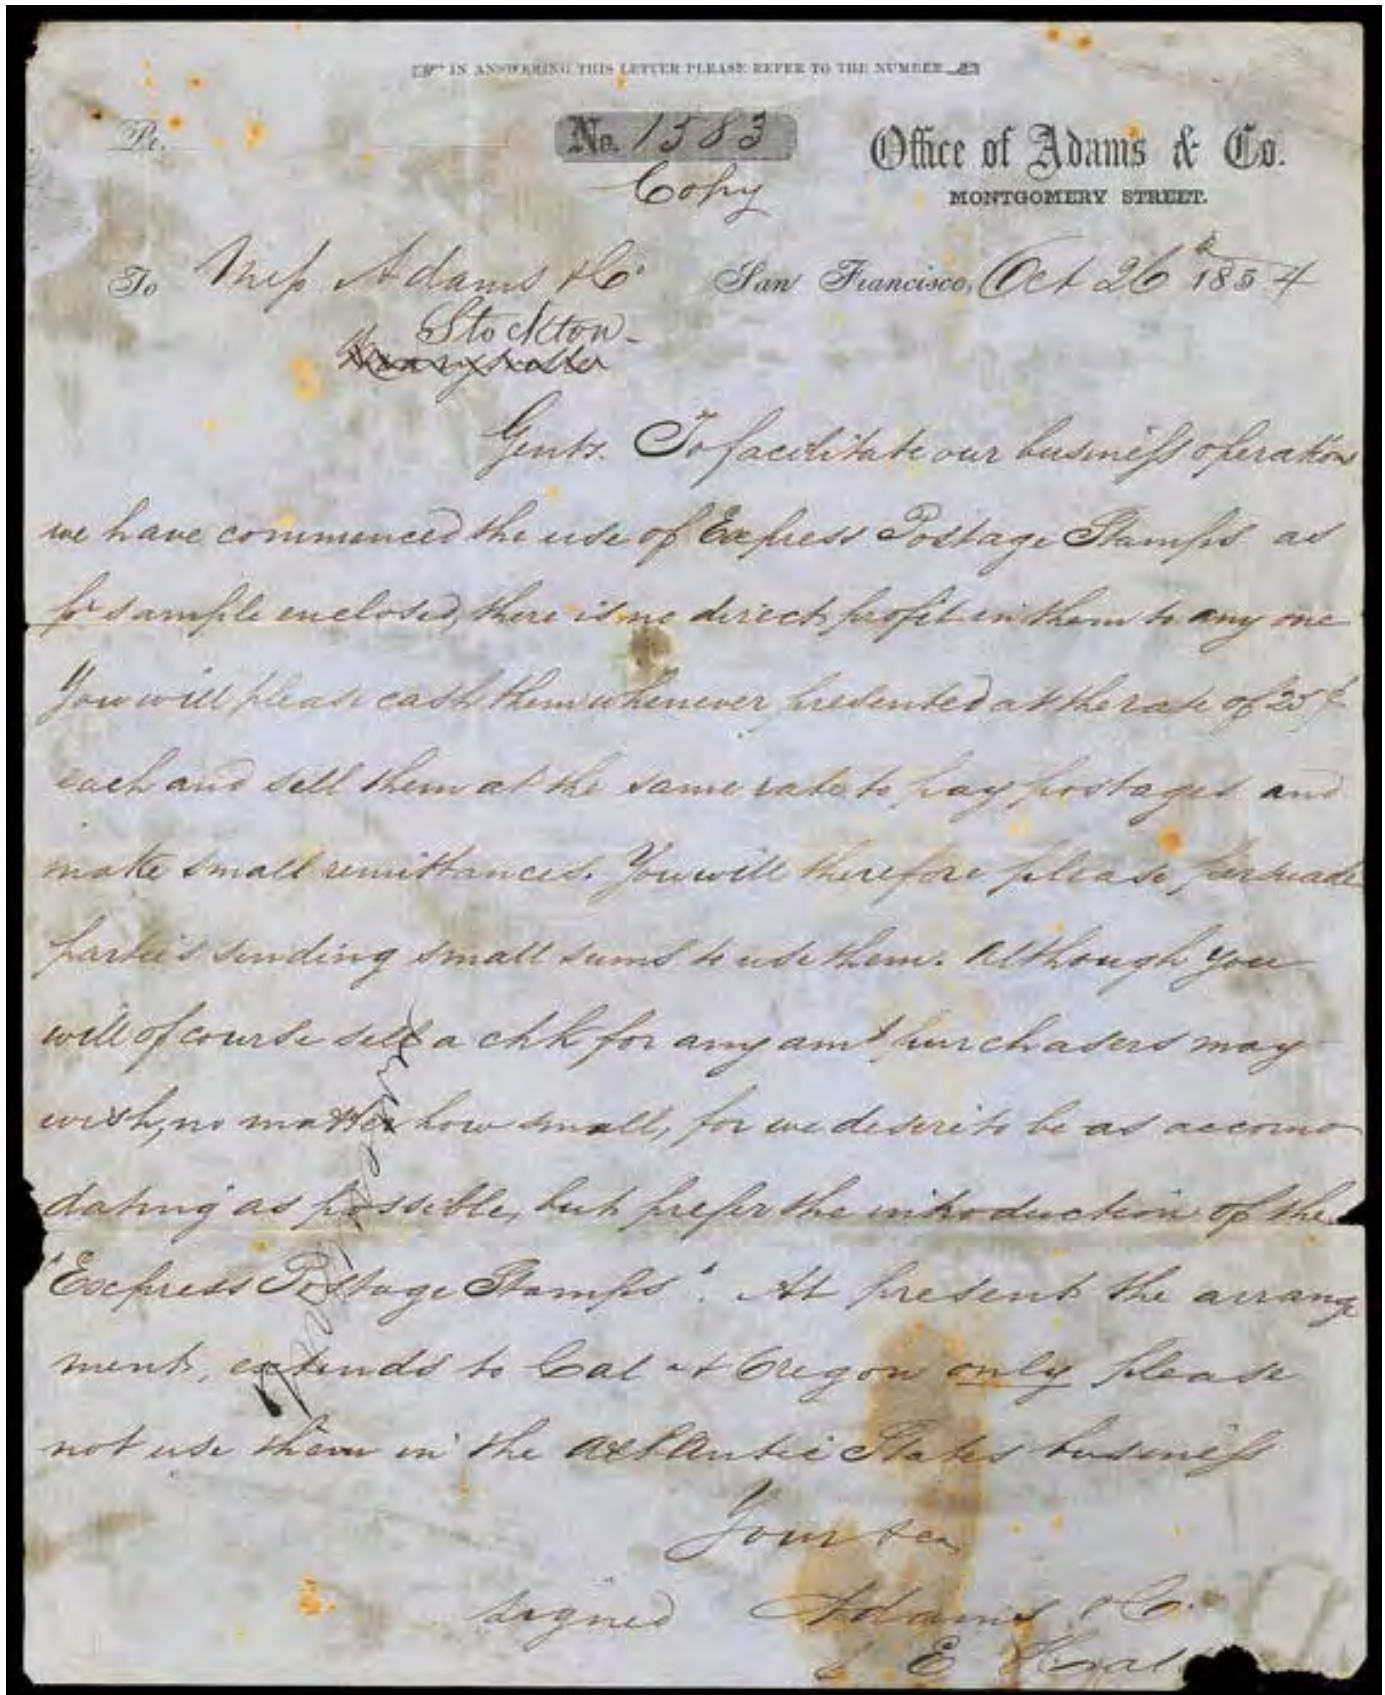 IN ANSWERING THIS LETTER PLEASE REFER TO THE NUMBER
Pr.
No. 1583
Copy
Office of Adams & Co.
MONTGOMERY STREET.
To Mess Adams & Co San Francisco, Oct 26th 1854
Stockton -
Gents. To facilitate our business operations
we have commenced the use of Express Postage Stamps as
pr sample enclosed, there is no direct profit in them to any one
You will please cash them whenever presented at the rate of 25¢
each and sell them at the same rate to pay postages and
make small remittances. You will therefore please persuade
parties sending small sums to use them. Although you
will of course sell a chk for any amt purchasers may
wish, no matter how small, for we desire to be as accomo
dating as possible, but prefer the introduction of the
"Express Postage Stamps". At present the arrange
ment, extends to Cal & Oregon only please
not use them in the Atlantic States business
Your &c
signed Adams & Co.
E